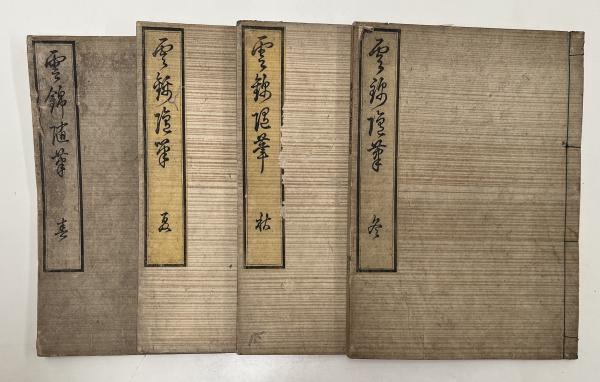 雲錦随筆 春
雲錦随筆 夏
雲錦随筆 秋
雲錦随筆 冬